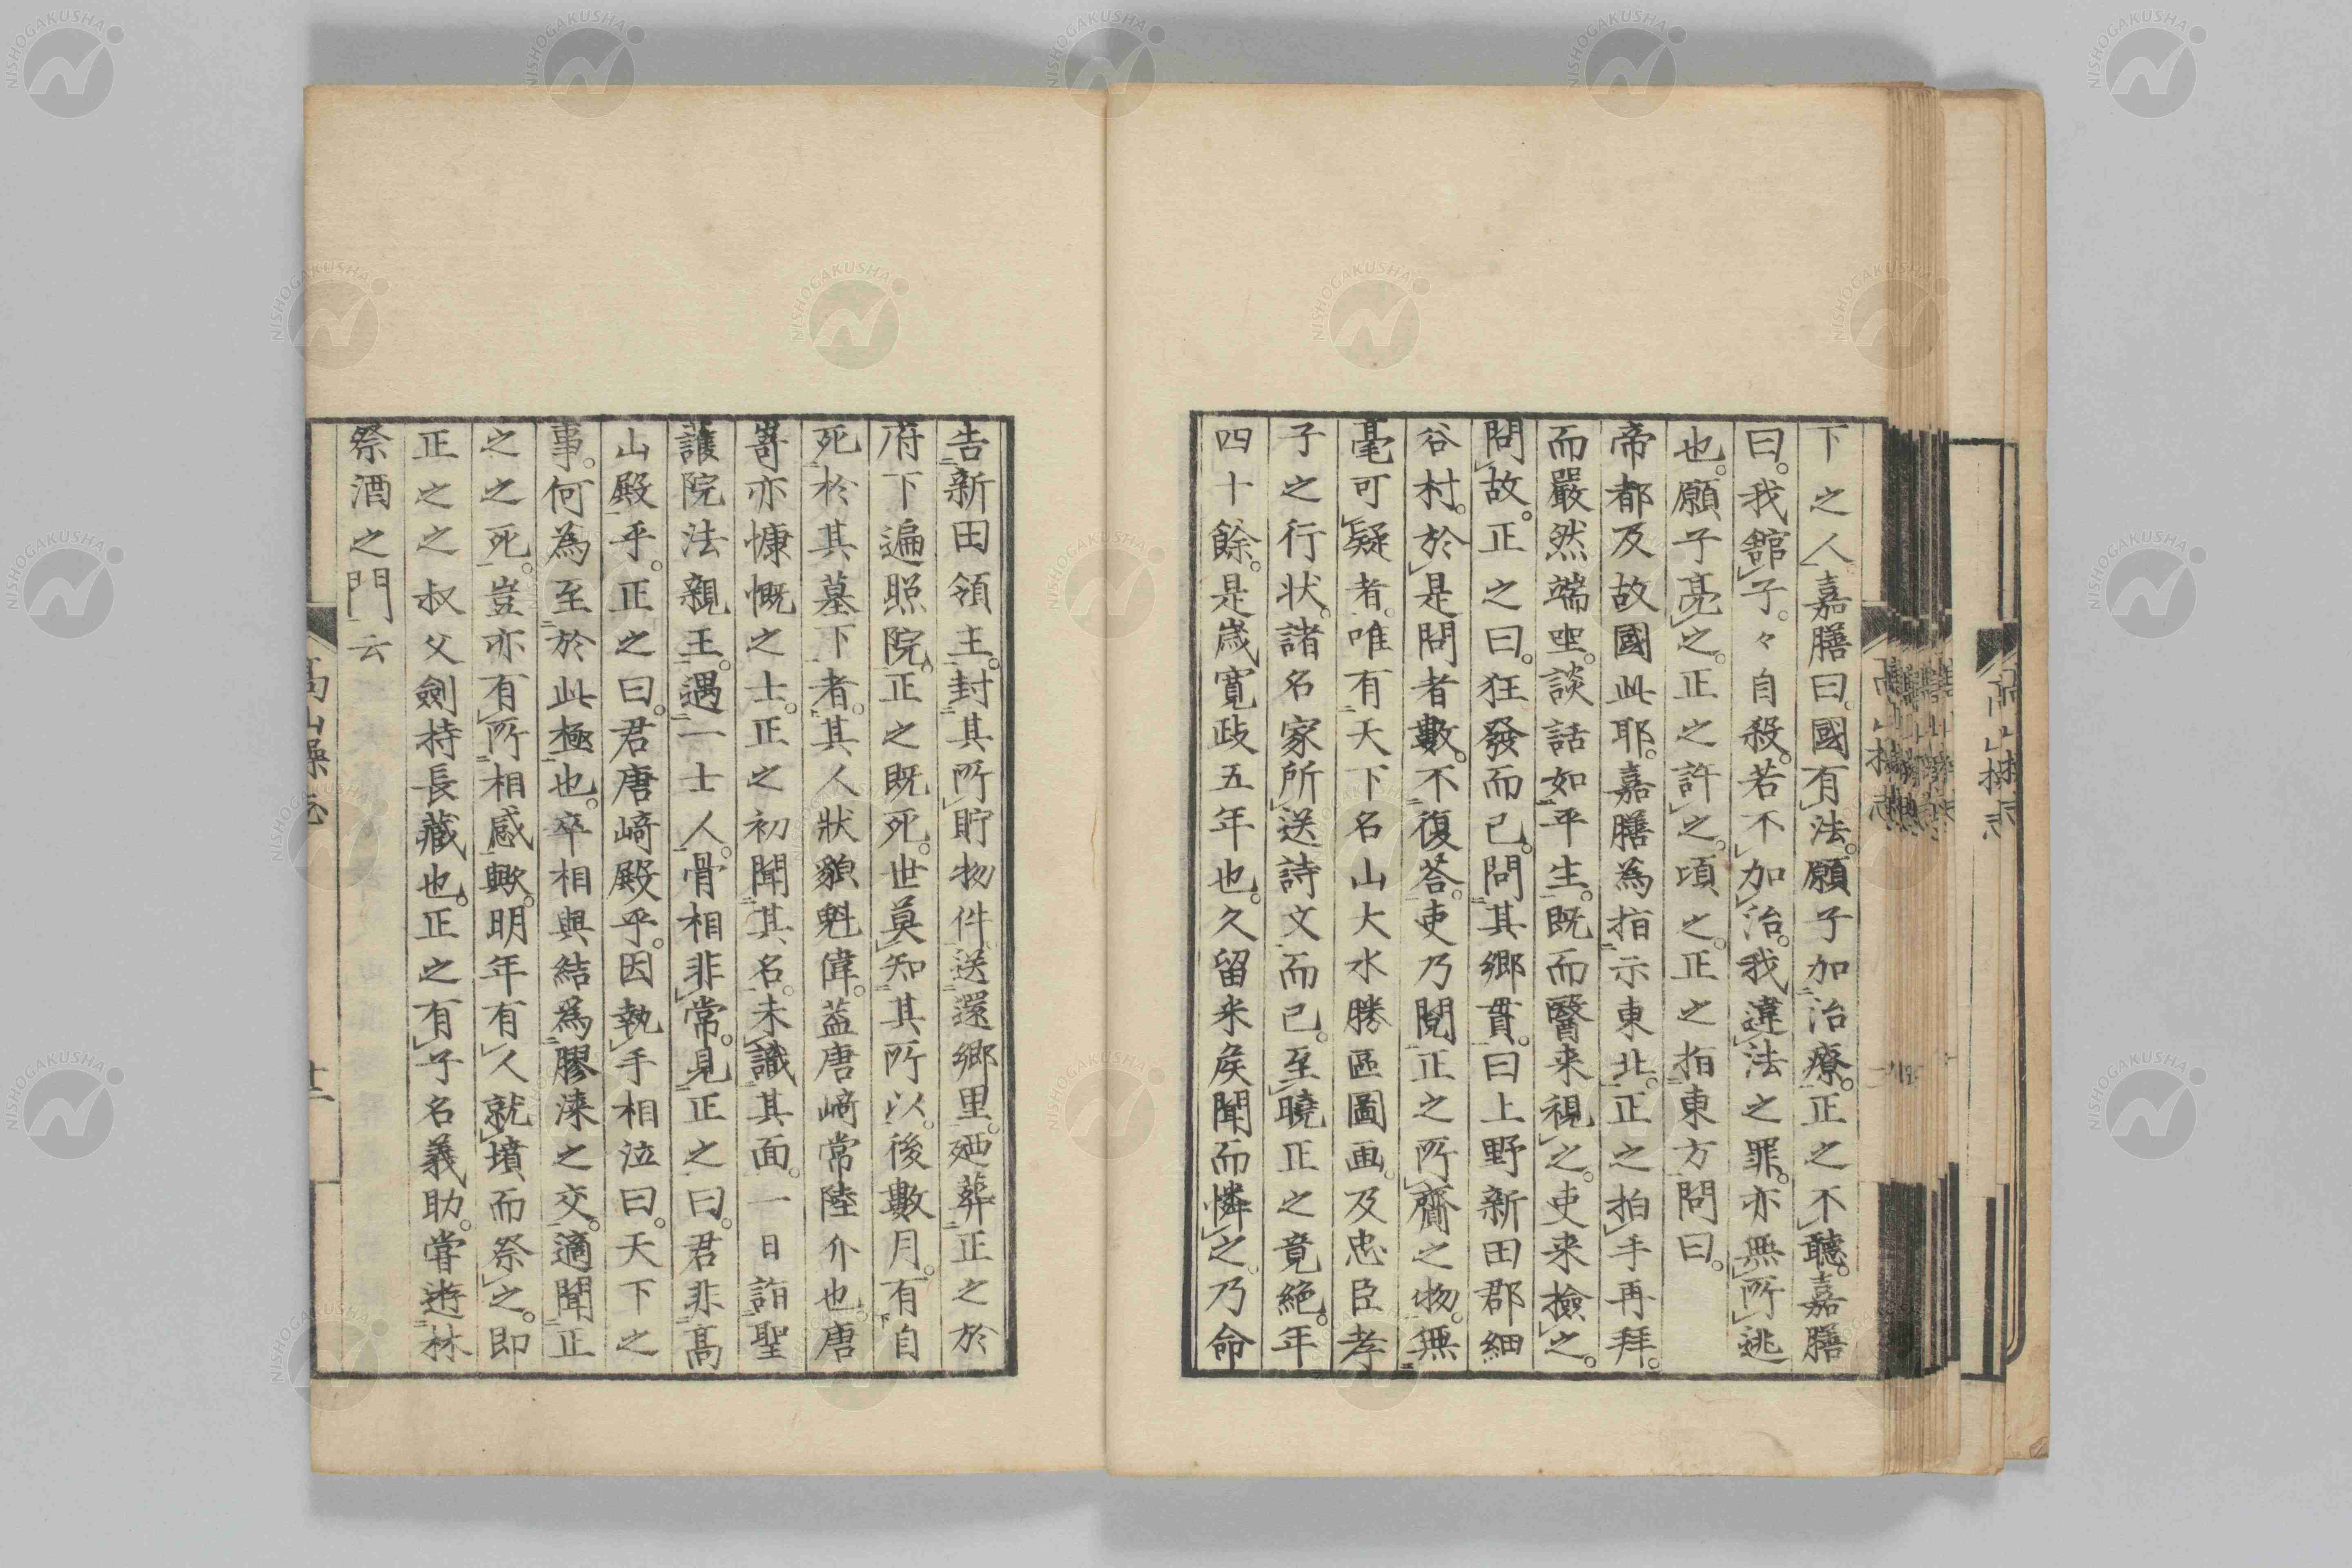 下之人嘉膳曰。國有法。願子加治療。正之不聽。嘉膳
曰。我舘子。々自殺。若不加治。我違法之罪。亦無所逃
也。願子亮之。正之許之。頃之。正之拍東方問曰。
帝都及故國此耶。嘉膳為指示東北。正之拍手再拜。
而嚴然端坐。談話如平生。既而醫来視之。吏来撿之。
問故。正之曰。狂發而已。問其鄉貫。曰上野新田郡細
谷村。於是問者數。不復荅。吏乃閱正之所齎之物。無
毫可疑者。唯有天下名山大水勝區圖画。及忠臣孝
子之行状。諸名家所送詩文而已。至曉正之竟絕。年
四十餘。是歳寛政五年也。久留米矦聞而憐之。乃命
告新田領主。封其所貯物件送還鄉里。廼葬正之於
府下遍照院。正之既死。世莫知其所以。後數月。有自
死於其墓下者。其人狀貌魁偉。葢唐﨑常陸介也。唐
嵜亦慷慨之士。正之初聞其名。未識其面。一日詣聖
護院法親王。遇一士人。骨相非常。見正之曰。君非高
山殿乎。正之曰。君唐﨑殿乎。因執手相泣曰。天下之
事。何為至於此極也。卒相與結為膠漆之交。適聞正
之之死。豈亦有所相感歟。明年有人就墳而祭之。即
正之之叔父劍持長藏也。正之有子名義助。甞遊林
祭酒之門云
高山操志
十二
NISHOGAKUSHA